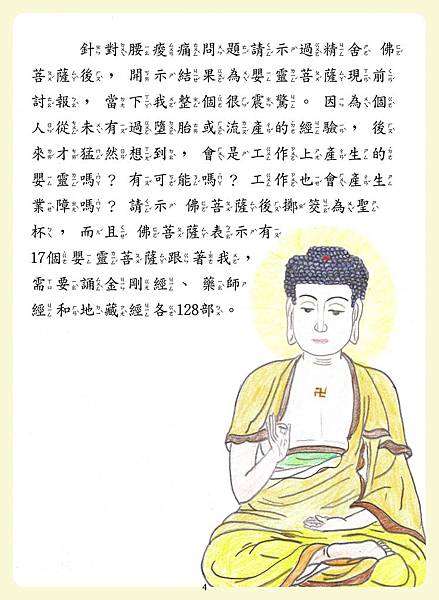 針對腰痠痛問題請示過精舍 佛
菩薩後，開示結果為嬰靈菩薩現前
討報，當下我整個很震驚。因為個
人從未有過墮胎或流產的經驗，後
來才猛然想到，會是工作上產生的
嬰靈嗎？有可能嗎？工作也會產生
業障嗎？請示 佛菩薩後擲筊為聖
杯，而且 佛菩薩表示有
17個嬰靈菩薩跟著我，
需要誦金剛經、藥師
經和地藏經各128部。
卍
4